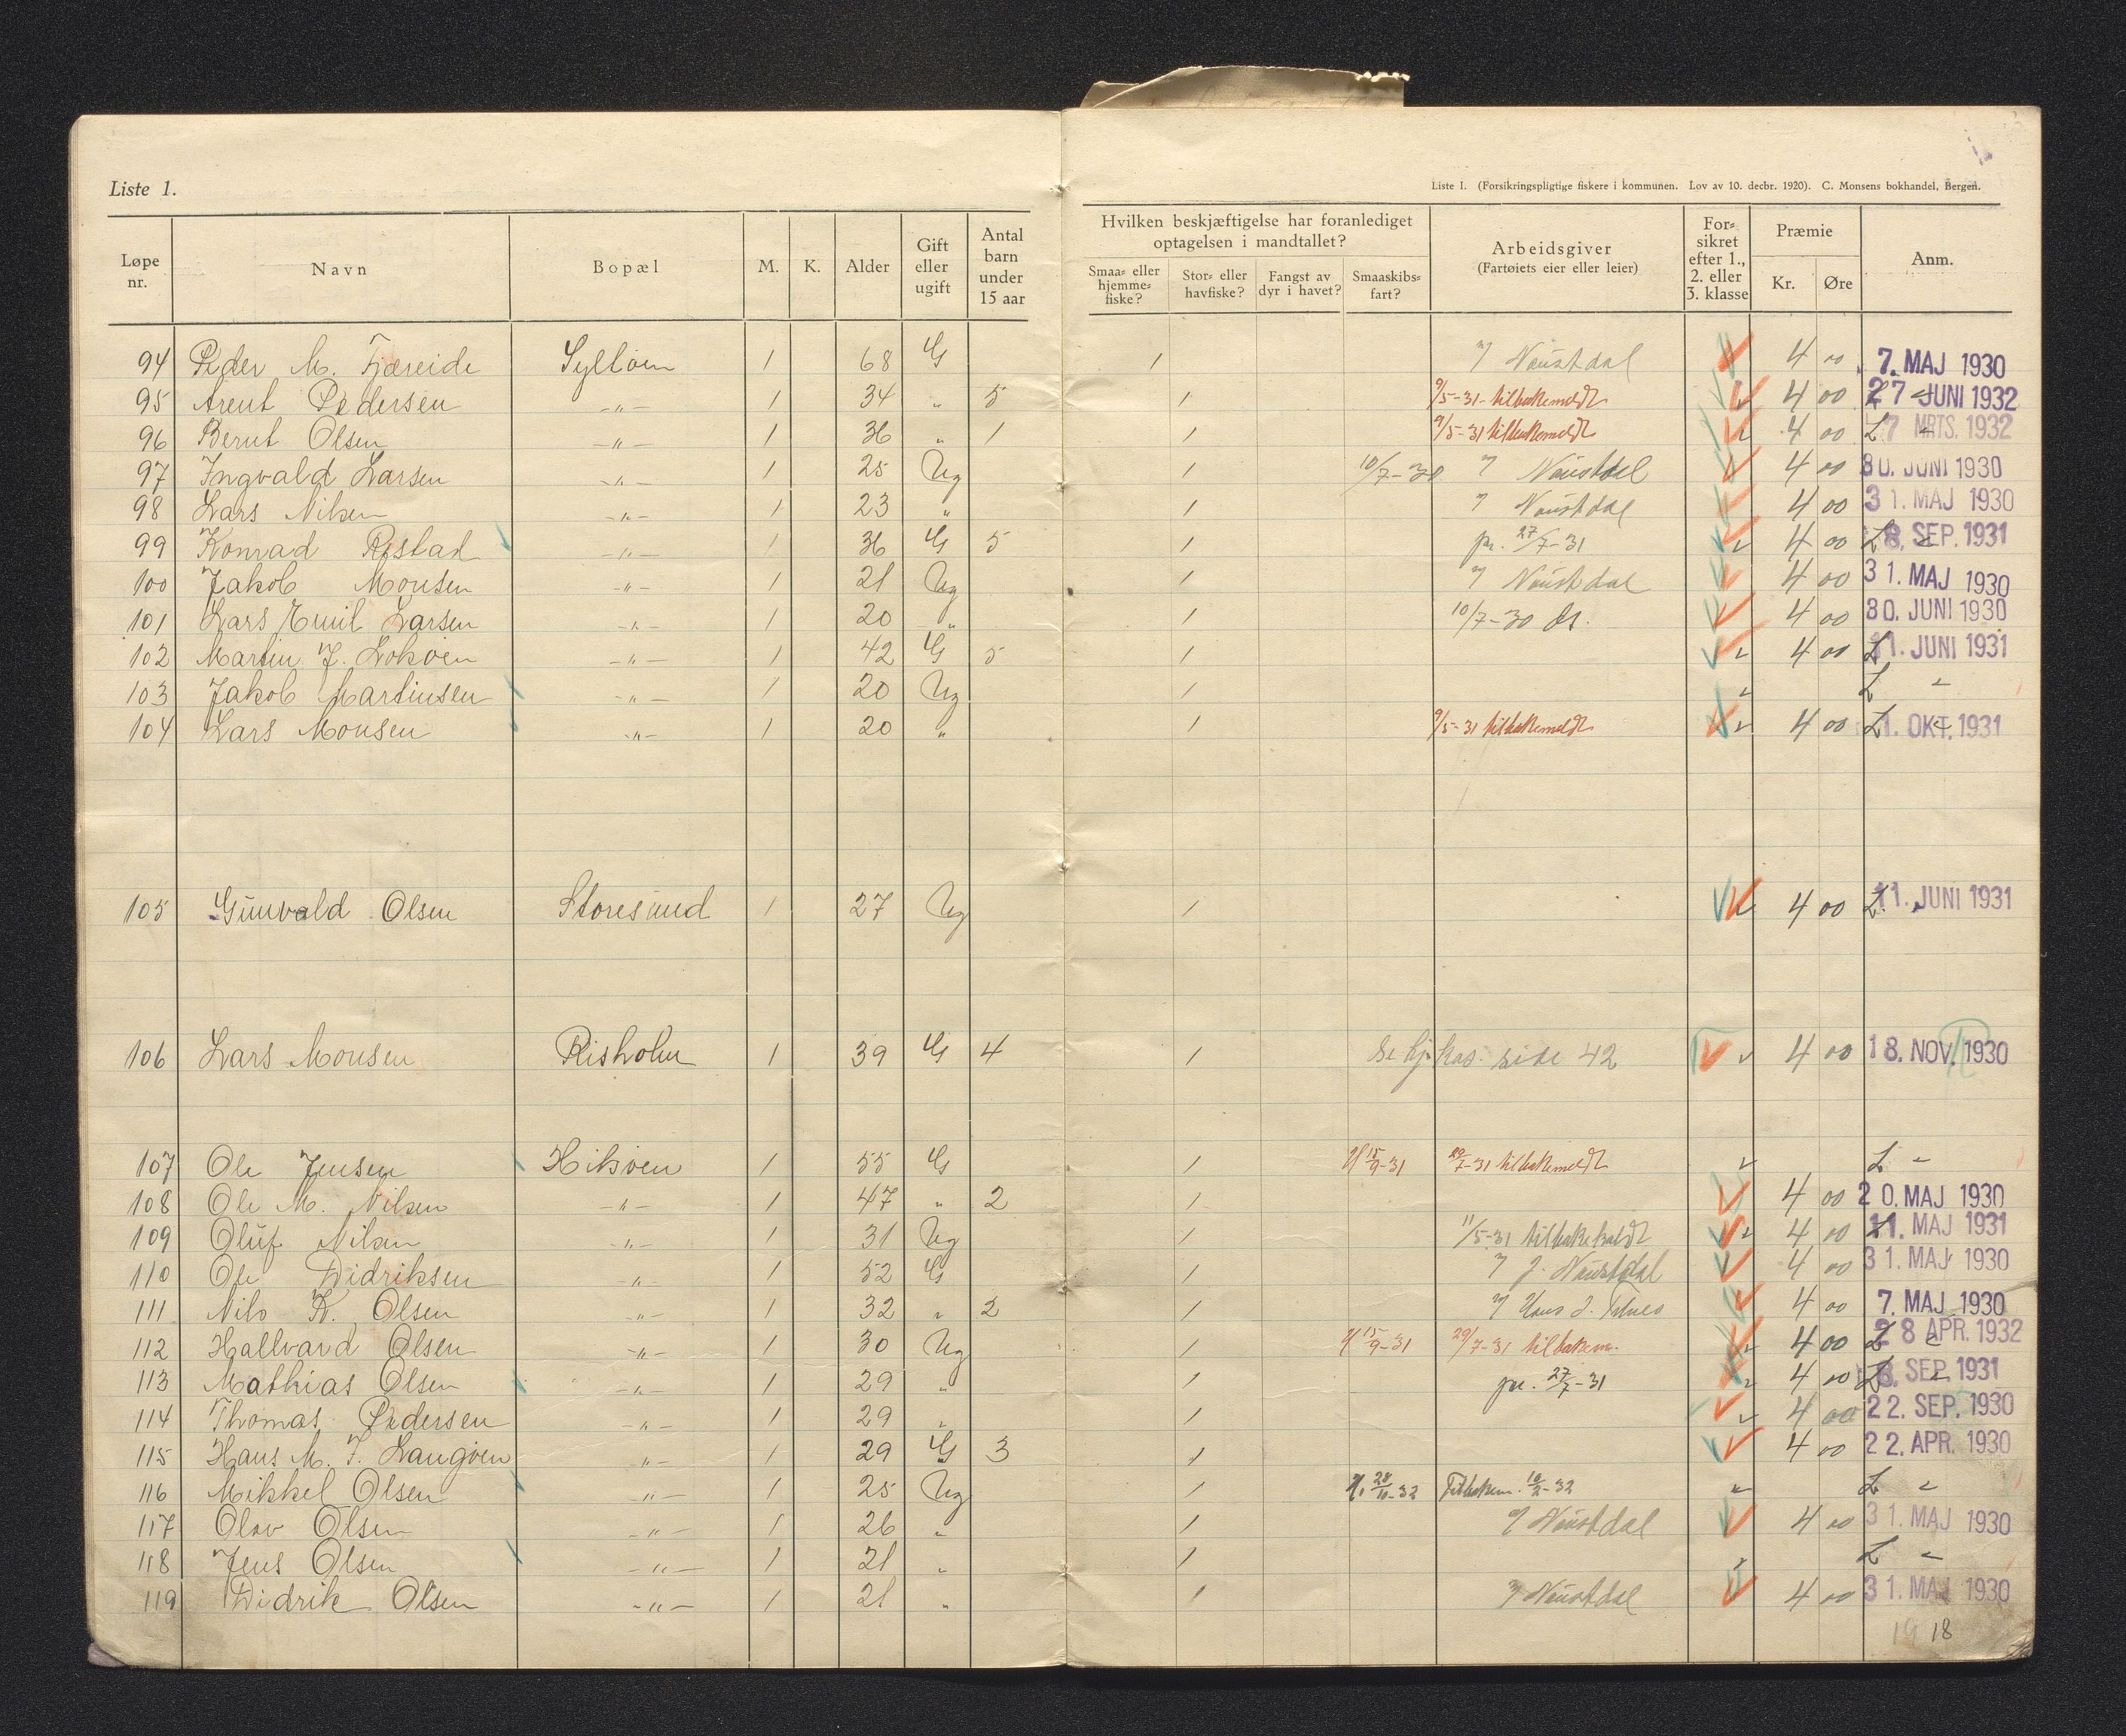 Liste 1.
Liste I. (Forsikringspligtige fiskere i kommunen. Lov av 10. decbr. 1920). C. Monsens bokhandel, Bergen.
Løpe nr. Navn Bopæl M. K. Alder Gift eller ugift Antal barn under 15 aar Hvilken beskjæftigelse har foranlediget optagelsen i mandtallet? Smaa- eller hjemme-fiske? Stor- eller havfiske? Fangst av dyr i havet? Smaaskibs-fart? Arbeidsgiver (Fartøiets eier eller leier) For-sikret efter 1., 2. eller 3. klasse Præmie Kr. Øre Anm.
94 Peder M. Fjæreide Sylløen 1 68 G 1 Naustdal 4 00 7. MAJ 1930
95 Arent Pedersen -"- 1 34 " 5 1 9/5-31 tilbakemeldt 4 00 27 JUNI 1932
96 Bernt Olsen -"- 1 36 " 1 1 9/5-31 tilbakemeldt 4 00 7 MRTS. 1932
97 Ingvald Larsen -"- 1 25 Ug 1 10/7-30 Naustdal 4 00 30. JUNI 1930
98 Lars Nilsen -"- 1 23 " 1 Naustdal 4 00 31. MAJ 1930
99 Konrad Ristad -"- 1 36 G 5 1 pr. 27/7-31 4 00 8. SEP. 1931
100 Jakob Monsen -"- 1 21 Ug 1 Naustdal 4 00 31. MAJ 1930
101 Lars Emil Larsen -"- 1 20 " 1 10/7-30 4 00 30. JUNI 1930
102 Martin J. Lokøen -"- 1 42 G 5 1 4 00 11. JUNI 1931
103 Jakob Martinsen -"- 1 20 Ug 1 L "
104 Lars Monsen -"- 1 20 " 1 9/5-31 tilbakemeldt 4 00 1. OKT. 1931
105 Gunvald Olsen Storesund 1 27 Ug 1 4 00 11. JUNI 1931
106 Lars Monsen Risholm 1 39 G 4 1 se hj. kas. side 42 4 00 18. NOV. 1930
107 Ole Jensen Hiksøen 1 55 G 1 15/9-31 29/7-31 tilbakemeldt L "
108 Ole M. Nilsen -"- 1 47 " 2 1 4 00 20. MAJ 1930
109 Oluf Nilsen -"- 1 31 Ug 1 11/5-31 4 00 11. MAJ 1931
110 Ole Didriksen -"- 1 52 G 1 J. Naustdal 4 00 31. MAJ 1930
111 Nils K. Olsen -"- 1 32 " 2 1 Hans J. 4 00 7. MAJ 1930
112 Hallvard Olsen -"- 1 30 Ug 1 15/9-31 29/7-31 tilbakem. 4 00 28 APR. 1932
113 Mathias Olsen -"- 1 29 " 1 pr. 27/7-31 4 00 8. SEP. 1931
114 Thomas Pedersen -"- 1 29 " 1 4 00 22. SEP. 1930
115 Hans M. J. Langøen -"- 1 29 G 3 1 4 00 22. APR. 1930
116 Mikkel Olsen -"- 1 25 Ug 1 Tilbakem. L "
117 Olav Olsen -"- 1 26 " 1 Naustdal 4 00 31. MAJ 1930
118 Jens Olsen -"- 1 21 " 1 L "
119 Didrik Olsen -"- 1 21 " 1 Naustdal 4 00 31. MAJ 1930
18